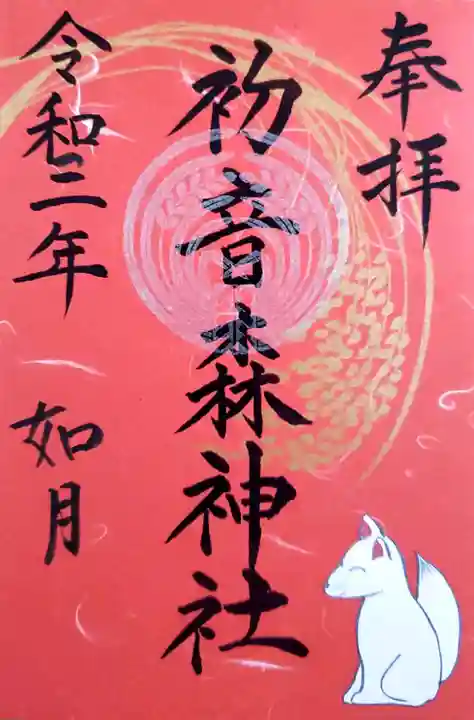 奉拝
初音森神社
令和三年
如月